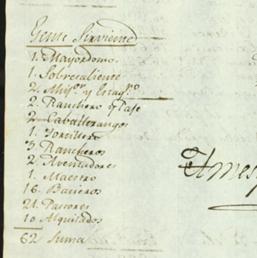 Gente Sirviente
1. Mayordomo
1. Sobresaliente
2. Ranchero y Cape
2. Caballerangos
1. Tortillero
3 Rancheros
2. Aventadores
1. Maestro
16. Bacieros
21. Pastores
10 Alquilados
62 Suma